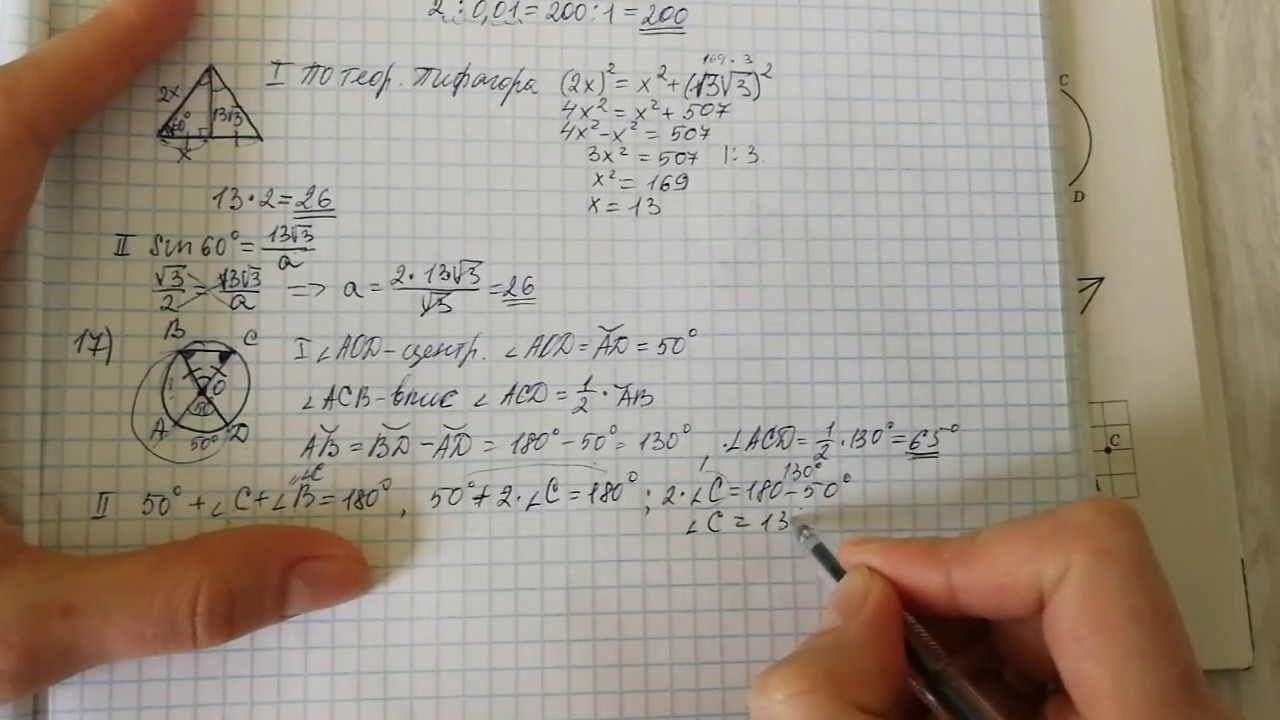 2 : 0,01 = 200 : 1 = 200
I по теор. Пифагора (2x)² = x² + (13√3)²
169 · 3
2x 60° 13√3 x
4x² = x² + 507
4x² - x² = 507
3x² = 507 |: 3
x² = 169
x = 13
13 · 2 = 26
II sin 60° = 13√3/a
√3/2 = 13√3/a => a = 2 · 13√3/√3 = 26
17)
B C O 50° A D 50°
I ∠AOD - центр. ∠AOD = A͝D = 50°
∠ACB - впис ∠ACD = 1/2 · A͝B
A͝B = B͝D - A͝D = 180° - 50° = 130°, ∠ACD = 1/2 · 130° = 65°
"∠C
II 50° + ∠C + ∠B = 180°, 50° + 2 · ∠C = 180°; 2 · ∠C = 180 - 50°
130°
∠C = 13
C
D
C